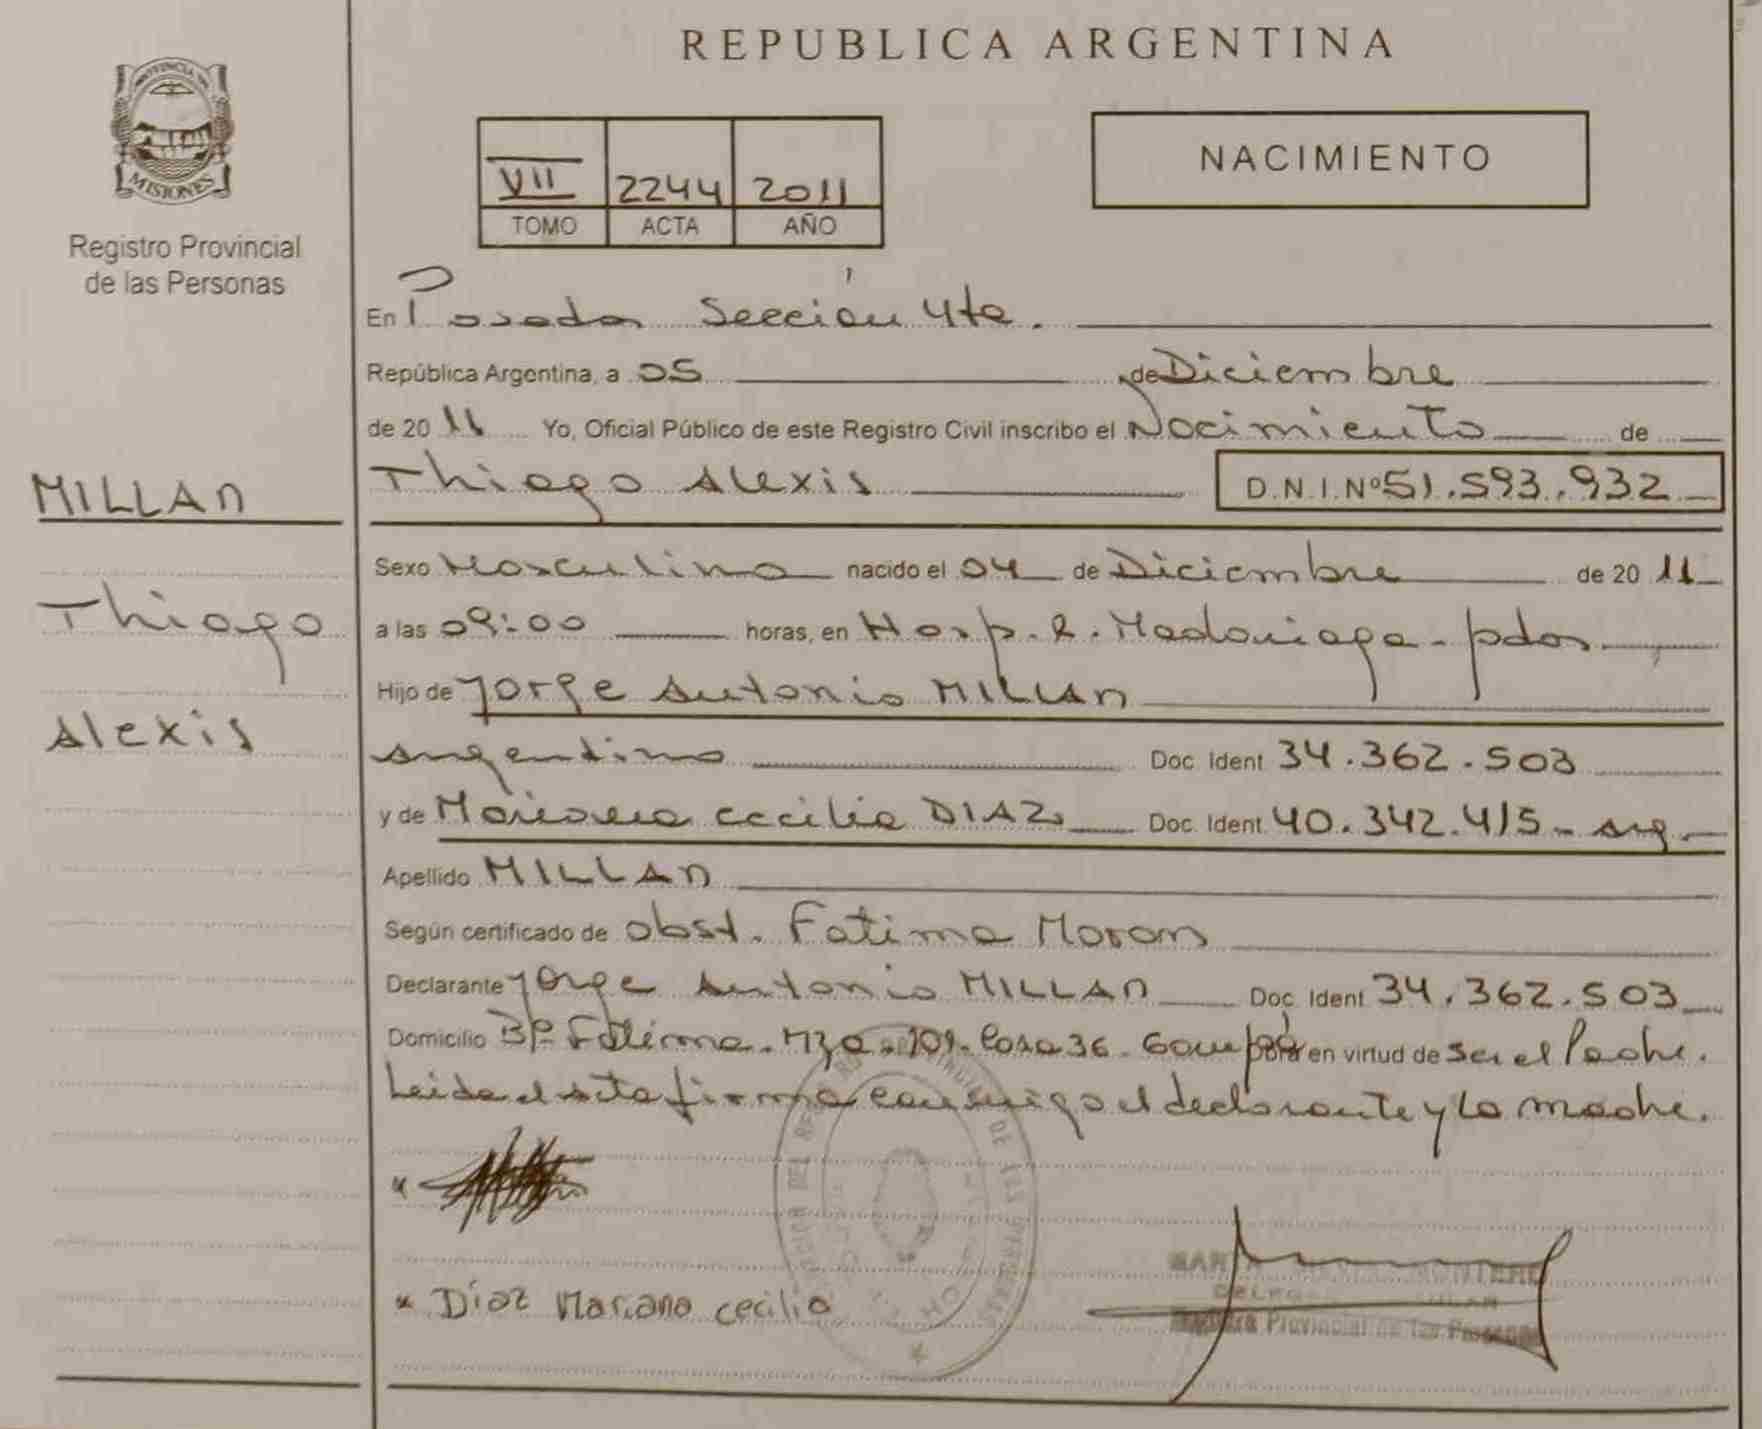 REPUBLICA ARGENTINA
PROVINCIA DE
MISIONES
Registro Provincial
de las Personas
VII 2244 2011
TOMO ACTA AÑO
NACIMIENTO
En Posadas Sección 4ta.
República Argentina, a 05 de Diciembre
de 2011 Yo, Oficial Público de este Registro Civil inscribo el Nacimiento de
Thiago Alexis D.N.I. Nº 51.593.932
MILLAN
Thiago
Alexis
Sexo Masculino nacido el 04 de Diciembre de 2011
a las 09:00 horas, en Hosp. R. Madariaga - pdas
Hijo de Jorge Antonio MILLAN
argentino Doc. Ident 34.362.503
y de Mariana cecilia DIAZ Doc. Ident. 40.342.415 - arg -
Apellido MILLAN
Según certificado de obst. Fatima Moran
Declarante Jorge Antonio MILLAN Doc. Ident 34.362.503
Domicilio Bº Fatima. Mza. 109. Casa 36. Garupá en virtud de ser el Padre.
Leida el acta firma conmigo el declarante y la madre.
Diaz Mariana cecilia
Registro Provincial de las Personas